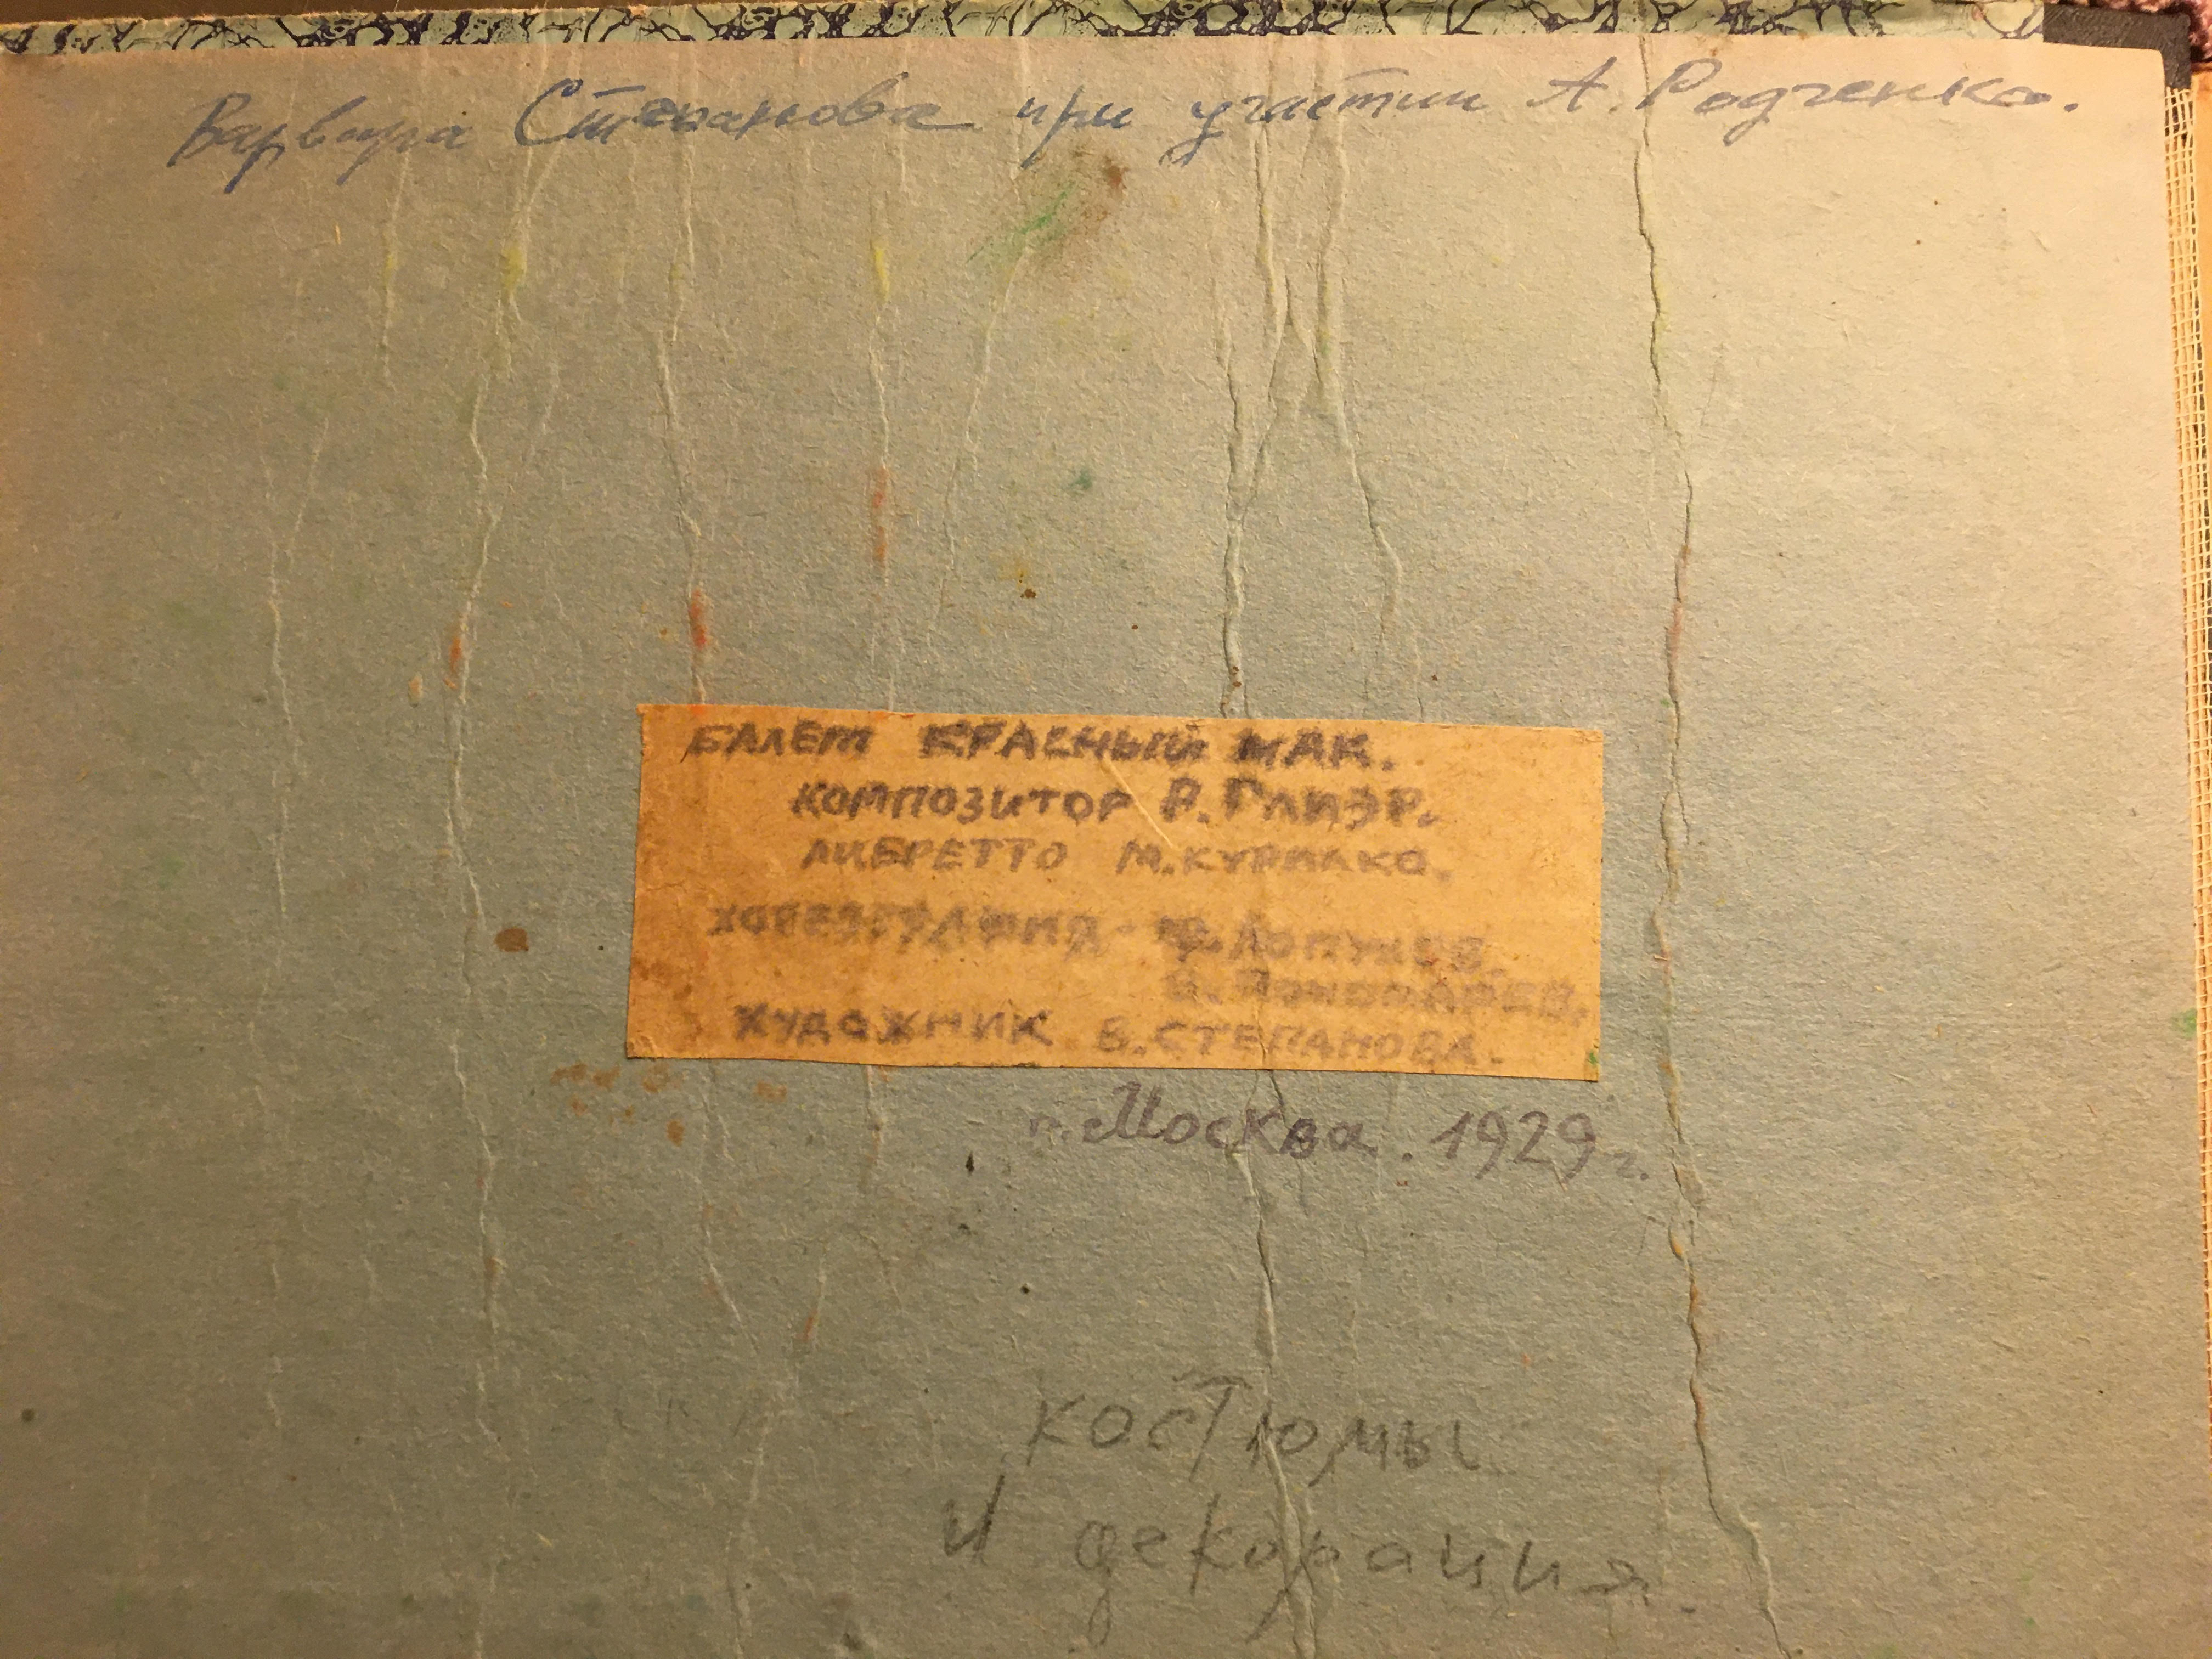 Варвара Степанова при участии А. Родченко.
БАЛЕТ КРАСНЫЙ МАК.
КОМПОЗИТОР Р. ГЛИЭР.
ЛИБРЕТТО М. КУРИЛКО.
ХОРЕЭГРАФИЯ - Ф. ЛОПУХОВ.
В. ПОНОМАРЕВ.
ХУДОЖНИК В. СТЕПАНОВА.
г. Москва. 1929 г.
КОСТЮМЫ
И декорация.